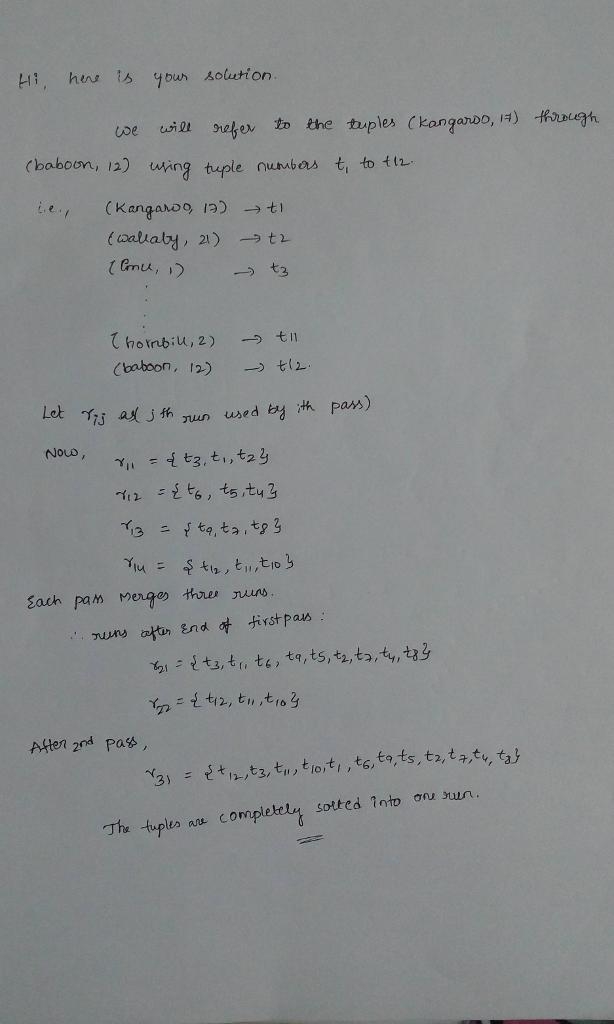 Hi, here is your solution.
we will refer to the tuples (Kangaroo, 17) through
(baboon, 12) using tuple numbers t1 to t12.
i.e., (Kangaroo, 17) → t1
(wallaby, 21) → t2
(emu, 1) → t3
.
.
.
(hornbill, 2) → t11
(baboon, 12) → t12.
Let rij as jth run used by ith pass)
Now, r11 = {t3, t1, t2}
r12 = {t6, t5, t4}
r13 = {t9, t7, t8}
r14 = {t12, t11, t10}
Each pass merges three runs.
∴ runs after End of first pass :
r21 = {t3, t1, t6, t9, t5, t2, t7, t4, t8}
r22 = {t12, t11, t10}
After 2nd pass,
r31 = {t12, t3, t11, t10, t1, t6, t9, t5, t2, t7, t4, t8}
The tuples are completely sorted into one run.